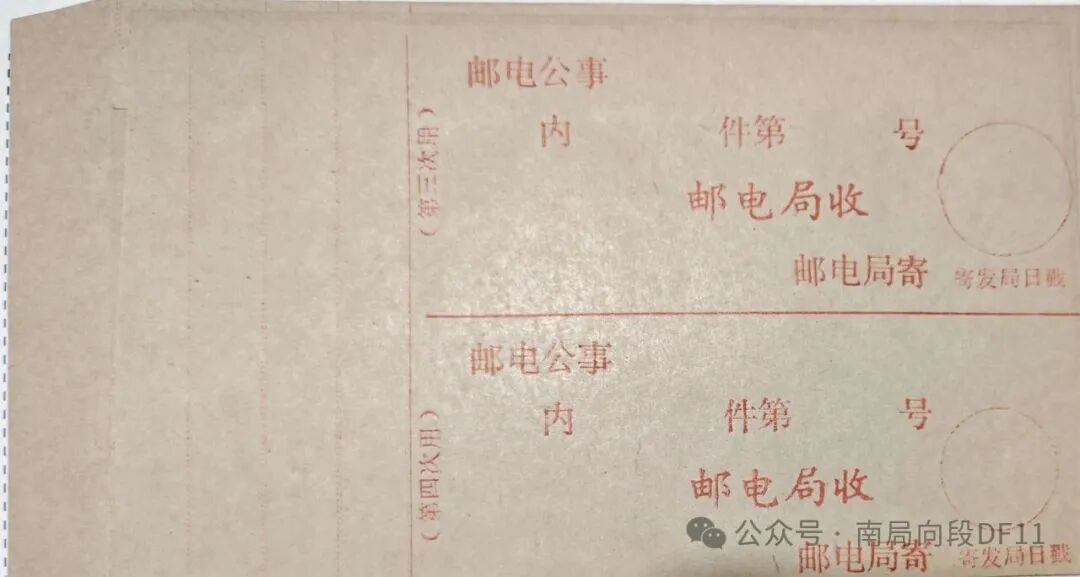 邮电公事
(第三次用)
内 件第 号
邮电局收
邮电局寄 寄发局日戳
邮电公事
(第四次用)
内 件第 号
邮电局收
公众号·南局向段DF11
邮电局寄 寄发局日戳